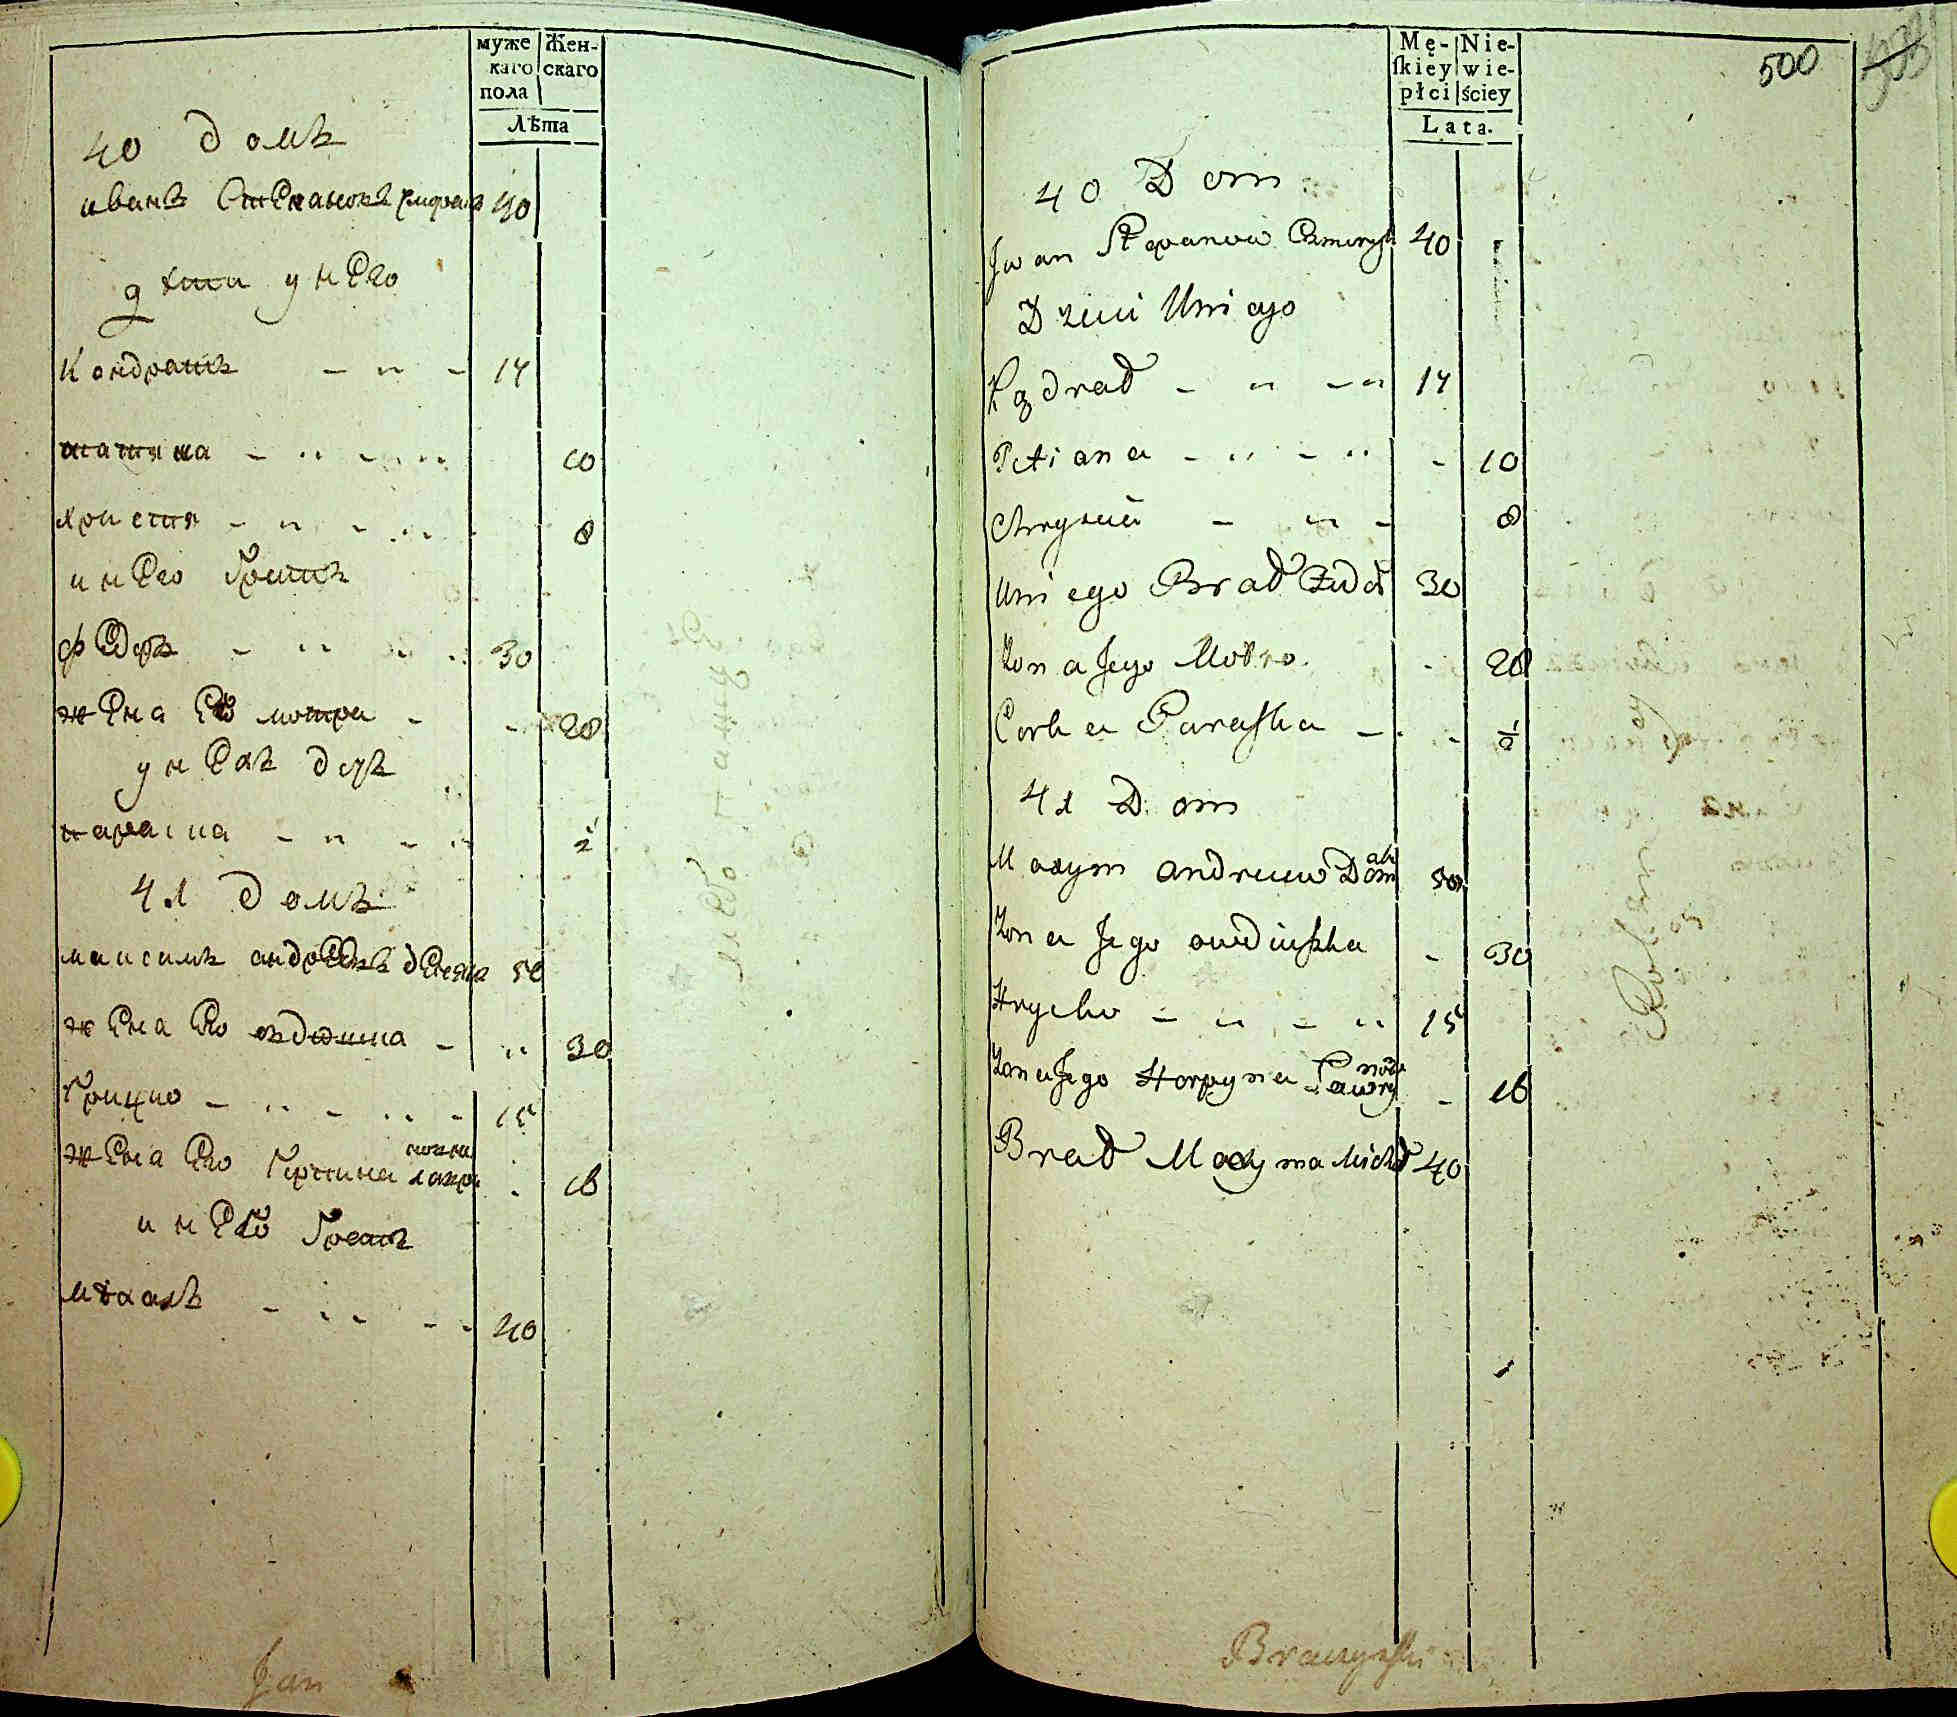 муже
каго
пола
Жен-
скаго
Лѣта
40 домъ
иванъ Степановъ 40
дѣти унего
Кондратъ 14
татяна 10
христя 8
инего братъ
федоръ 30
жена его мотра 28
унехъ дочъ
параска ½
41 домъ
максимъ андреевъ 50
жена его овдюшка 30
Грицко 15
жена его Гарпина 16
инего братъ
михаль 40
Jan
Mę-
ſkiey
płci
Nie-
wie-
ściey
Lata.
500
40 Dom
Jwan Stepanow 40
Dzieci Uniego
Kądrad 14
Tetiana 10
Chrystia 8
Uniego Brad 30
Żona Jego Motra 28
Corka Paraſka ½
41 Dom
Maxym Andreiew 50
Żona Jego owdiuſzka 30
Hrycko 15
Żona Jego Horpyna 16
Brad Maxyma 40